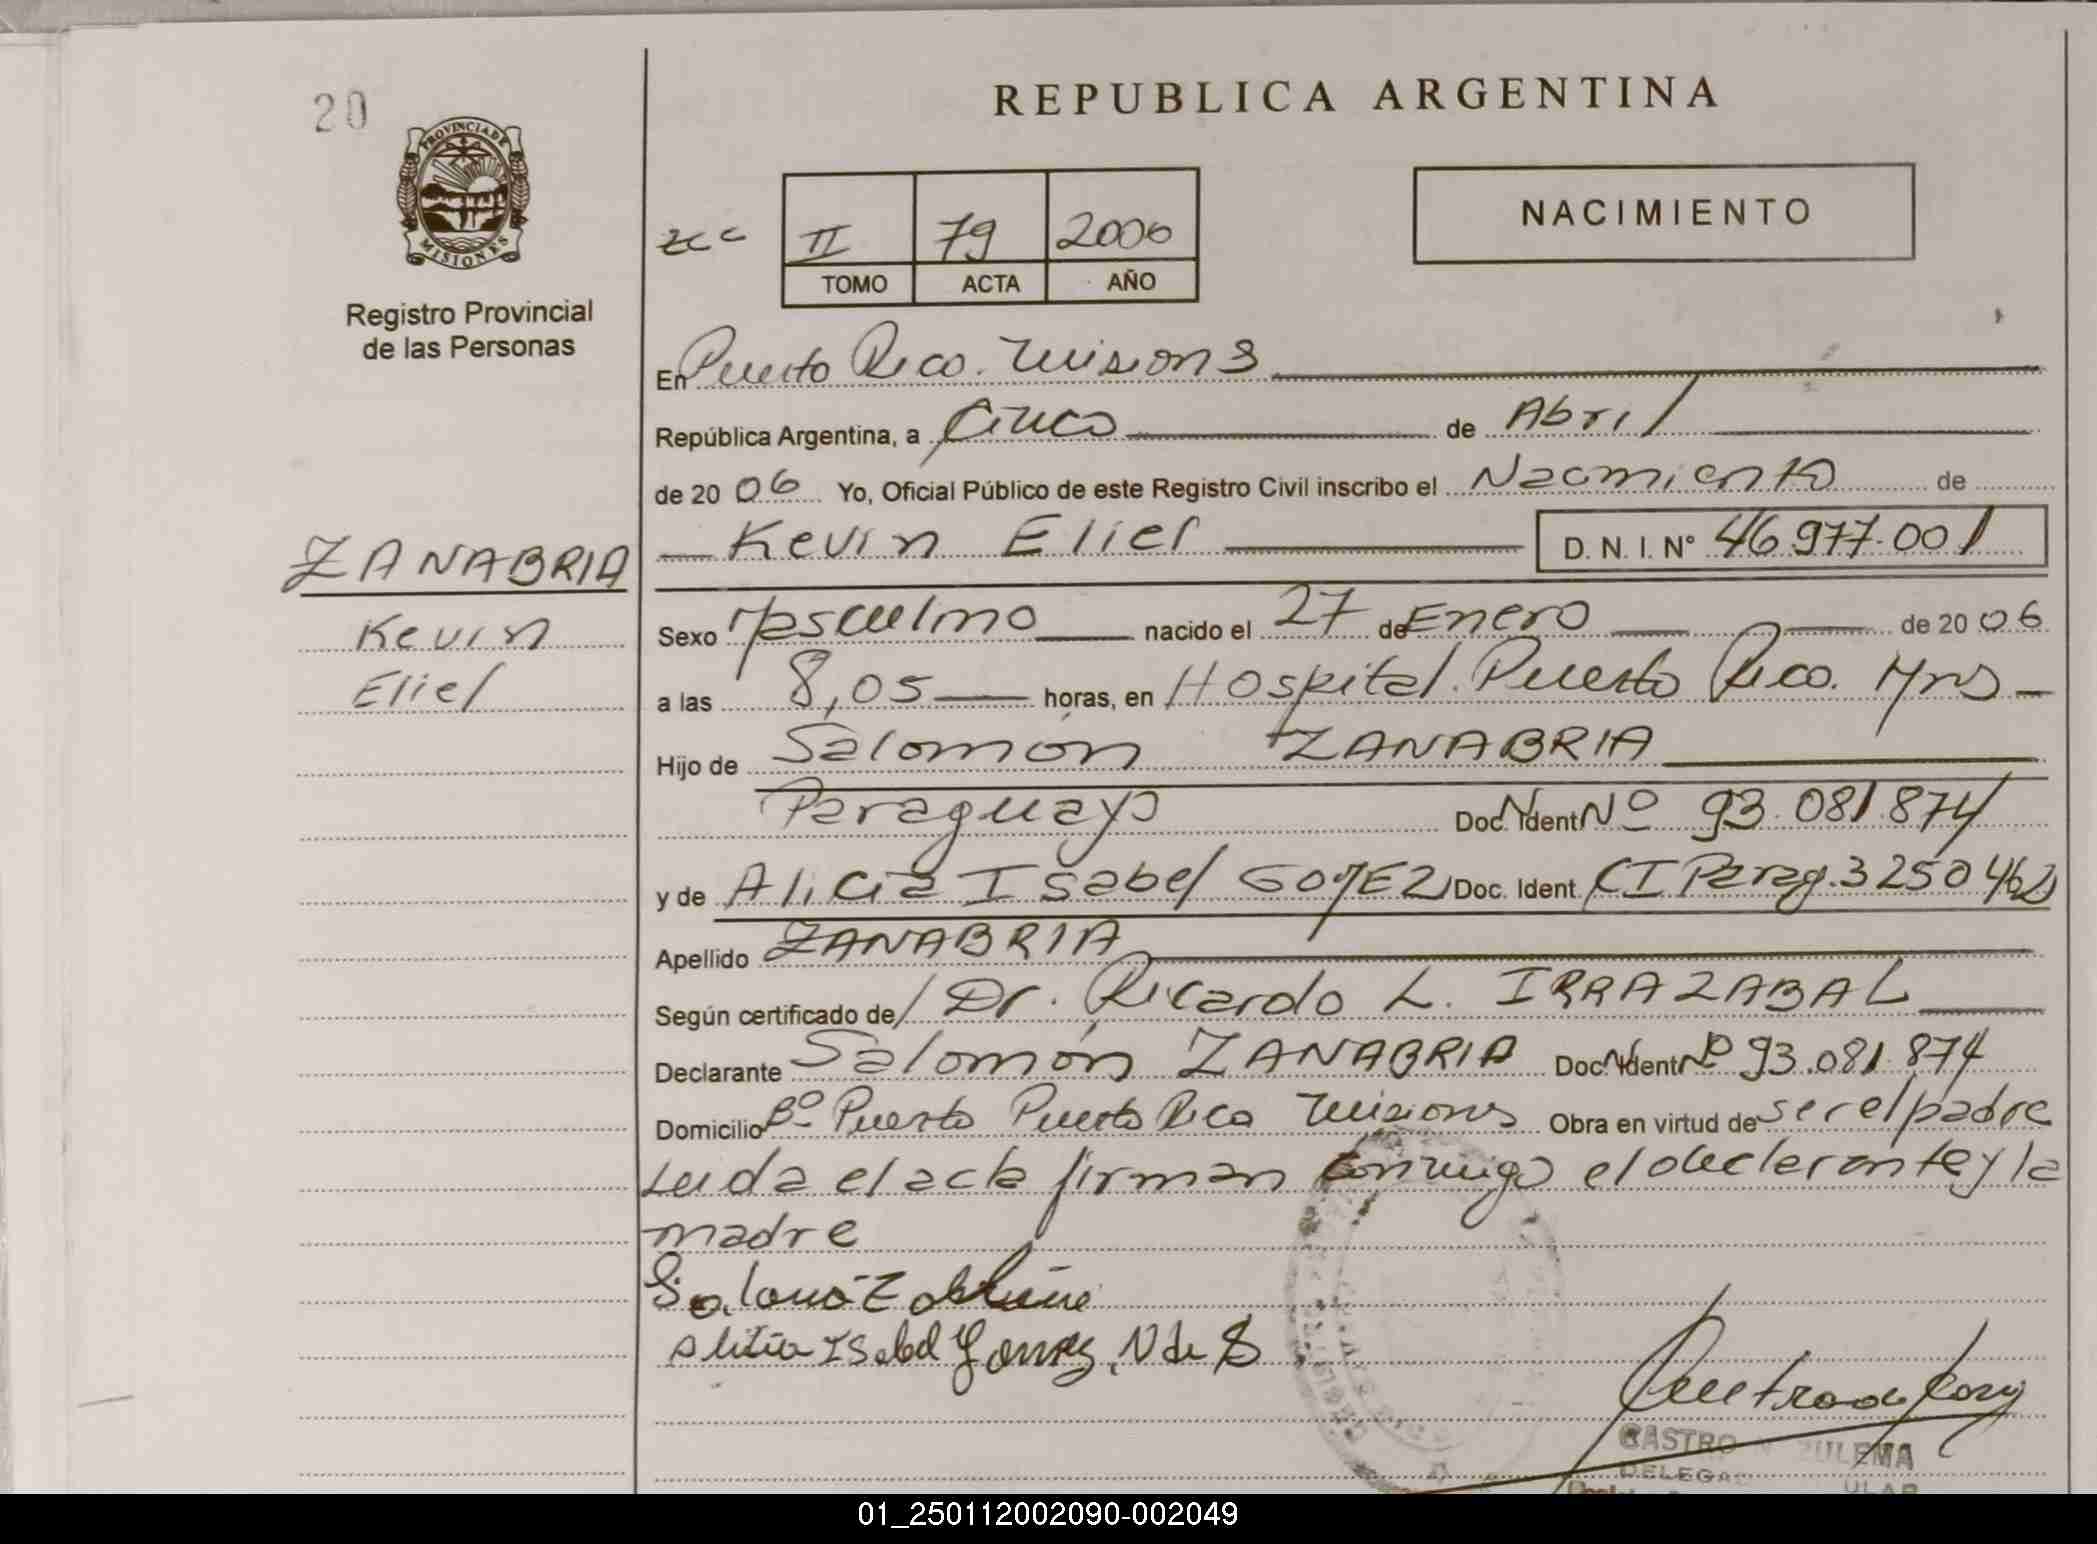 20
PROVINCIA DE
MISIONES
Registro Provincial
de las Personas
REPUBLICA ARGENTINA
II 79 2006
TOMO ACTA AÑO
NACIMIENTO
En Puerto Rico. Misiones
República Argentina, a Cinco de Abril
de 20 06 Yo, Oficial Público de este Registro Civil inscribo el Nacimiento de
Kevin Eliel D. N. I. N° 46.977.001
ZANABRIA
Kevin
Eliel
Sexo Masculino nacido el 27 de Enero de 20 06
a las 8,05 horas, en Hospital. Puerto Rico. Mns
Hijo de Salomón ZANABRIA
Paraguayo Doc. Ident Nº 93.081.874
y de Alicia Isabel GOMEZ Doc. Ident. CI Parag. 3250462
Apellido ZANABRIA
Según certificado de/ Dr. Ricardo L. IRRAZABAL
Declarante Salomón ZANABRIA Doc. Ident Nº 93.081.874
Domicilio Bº Puerto Puerto Rico Misiones Obra en virtud de ser el padre
Leida el acta firman conmigo el declarante y la
madre
Alicia Isabel Gomez. N de
CASTRO ZULEMA
01_250112002090-002049